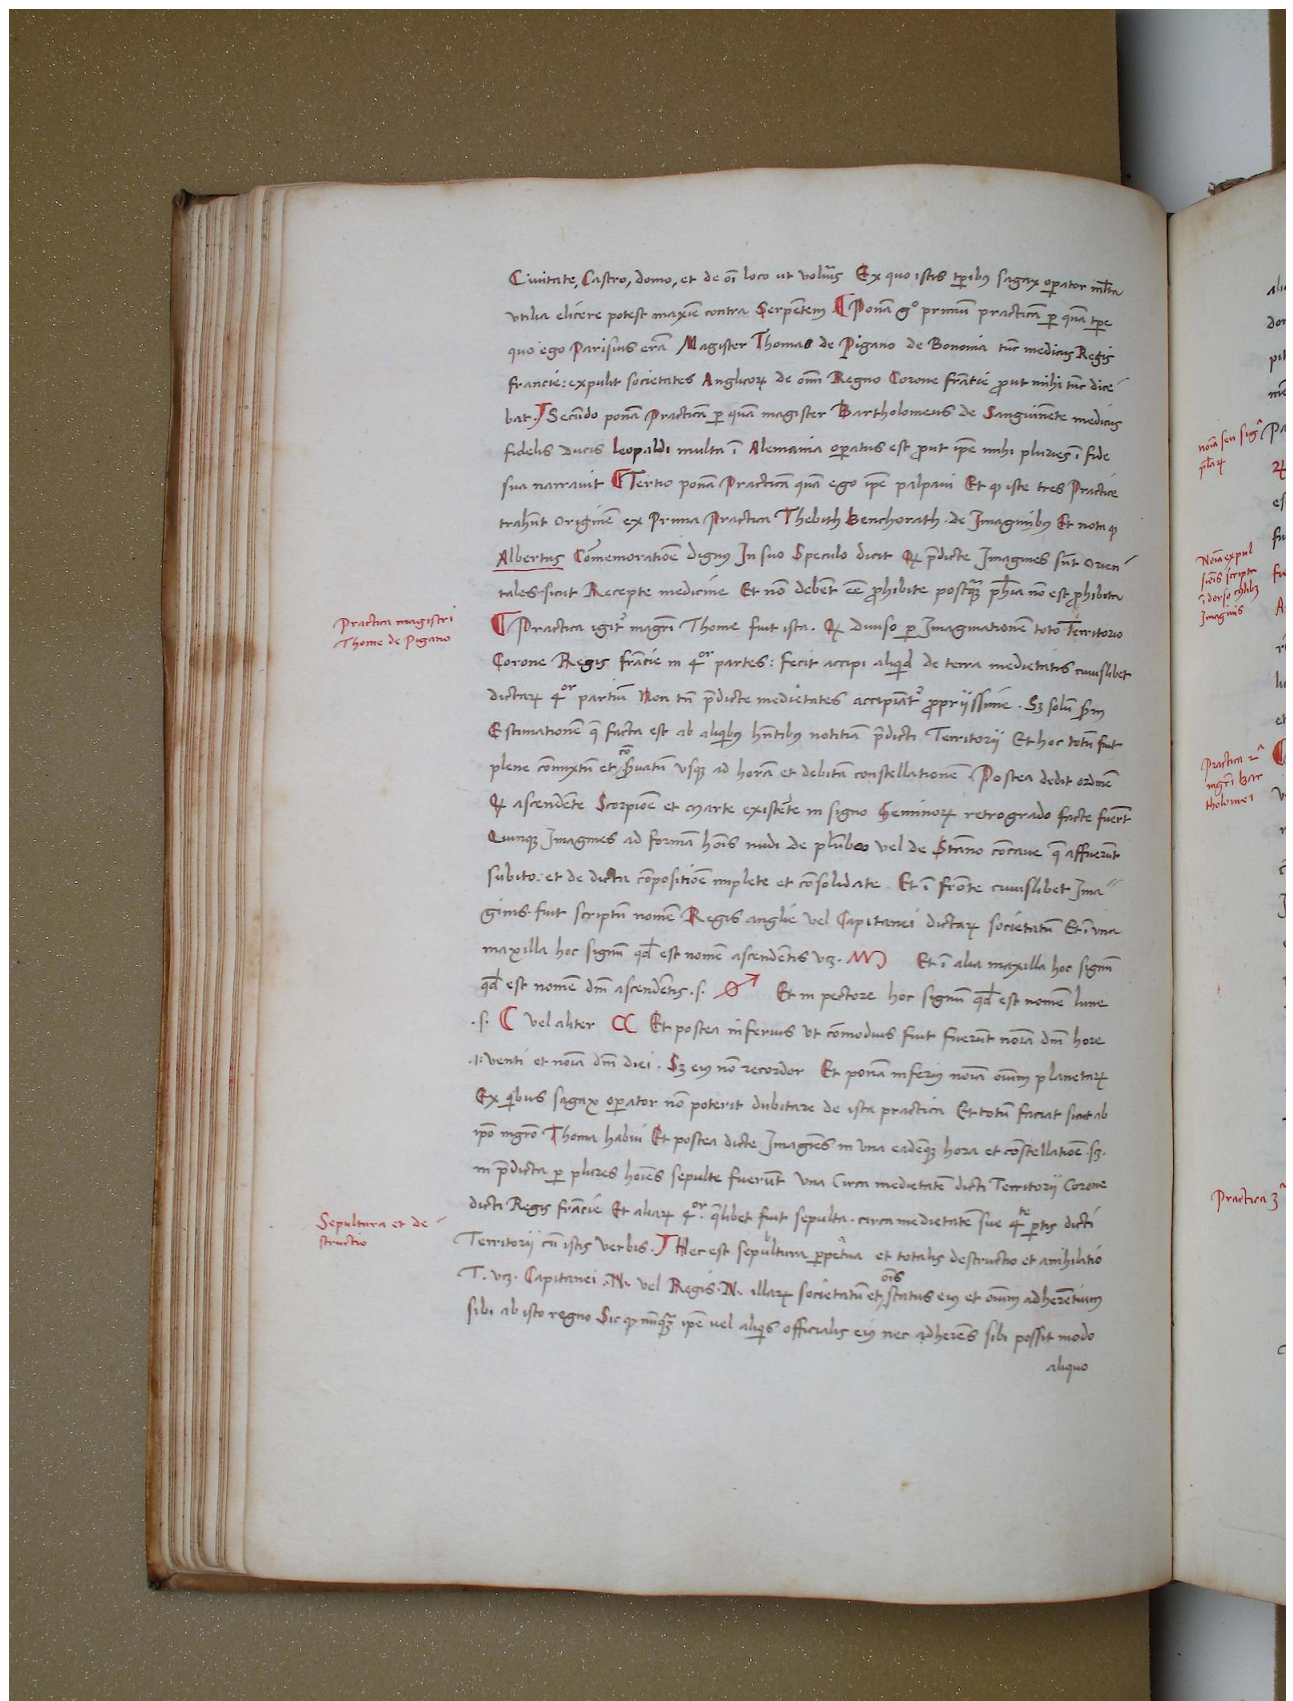 Ciuitate, Castro, domo, et de oī loco ut volūis Ex quo istis tp̄ibꝰ sagax oꝑator ml̄ta
vtilia elicere potest maxīe contra Serpētem ¶ Ponā gͦ primū practicā ꝑ quā tp̄e
quo ego Parisiūs erā Magister Thomas de Pigano de Bononia tūc medicus Regis
francie: expulit societates Anglicoꝝ de omī Regno Corone frācie ꝓut mihi tūc dice
bat. Secūdo ponā Practicā ꝑ quā magister Bartholomeus de Sanguinēte medicus
fidelis Ducis leopaldi multa ī Alemania oꝑatus est ꝓut ip̄e mihi pluries ī fide
sua narrauit ¶ Tertio ponā Practicā quā ego ip̄e palpaui Et ꝙ iste tres Practice
trahūt Originē ex Prima Practica Thebith Benchorath. de Imaginibꝰ Et nota ꝙ
Albertus Cōmemoratiōe dignꝰ In suo Speculo dicit Qꝫ p̄dicte Imagines sūt Orien
tales sicut Recepte medicine Et nō debēt eē ꝓhibite postqꝫ ph̄ia nō est ꝓhibita
Practica magistri
Thome de Pigano
¶ Practica igit᷑ magrī Thome fuit ista. Qꝫ Diuiso ꝑ Imaginationē toto Territorio
Corone Regis frācie in 4ᵒʳ partes: fecit accipi aliqd̄ de terra medietatis cuiuslibet
dictaꝝ 4ᵒʳ partiū Non tn̄ p̄dicte medietates accipiāt᷑ ꝓpriissīe. Sꝫ solū scd̄m
Estimationē q̄ facta est ab aliqibꝰ hn̄tibus notitiā p̄dicti Territorij Et hoc totū fuit
plene cōmixtū et cōseruatū vsqꝫ ad horā et debitā constellationē. Postea dedit ordinē
Qꝫ ascendēte Scorpiōe et Marte existēte in signo Geminoꝝ retrogrado facte fuerūt
Quinqꝫ Imagines ad formā hoīs nudi de plūbo vel de Stāno cōcaue q̄ affuerūt
subito: et de dicta cōpositiōe implete et cōsolidate. Et ī frōte cuiuslibet Ima
ginis fuit scriptū nomē Regis anglie vel Capitanei dictaꝝ societatū Et ī vna
maxilla hoc signū qd̄ est nomē ascendētis vꝫ. ♏ Et ī alia maxilla hoc signū
qd̄ est nomē dn̄i ascendētis .s. ♂ Et in pectore hoc signū qd̄ est nomē lune
.s. ☾ vel aliter ☾☾ Et postea inferius vt cōmodius fuit fuerūt noīa dn̄i hore
.i. venti et noīa dn̄i diei. Sꝫ eiꝰ nō recordor Et ponā inferiꝰ noīa oīum planetaꝝ
Ex qibus sagax oꝑator nō poterit dubitare de ista practica Et totū faciat sicut ab
ip̄o mgrō Thoma habui Et postea dicte Imagīes in vna eadēqꝫ hora et cōstellatiōe .sꝫ.
in p̄dicta ꝑ plures hoīes sepulte fuerūt Vna Circa medietatē dicti Territorij Corone
dicti Regis frācie Et aliaꝝ 4ᵒʳ. q̄libet fuit sepulta. circa medietatē sue 4ᵗᵉ ꝑtis dicti
Sepultura et de
structio
Territorij cū istis verbis. Hec est sepultura ꝑpetua et totalis destructio et anihilatio
T. vꝫ. Capitanei .N. vel Regis .N. illaꝝ societatū et oīs status eiꝰ et oīum adherētium
sibi ab isto regno Sic ꝙ nūqꝫ ip̄e vel aliqis officialis eiꝰ nec adherēs sibi possit modo
aliquo
Practica 2ᵃ
mgrī Bar
tholomei
Practica 3ᵃ